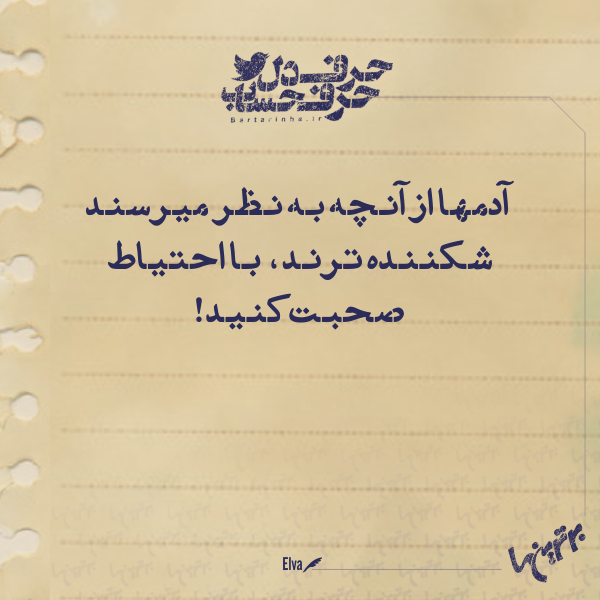 حرف دل
حرف حساب
Bartarinha.ir
آدمها از آنچه به نظر میرسند
شکننده ترند، با احتیاط
صحبت کنید!
Elva
برترین ها